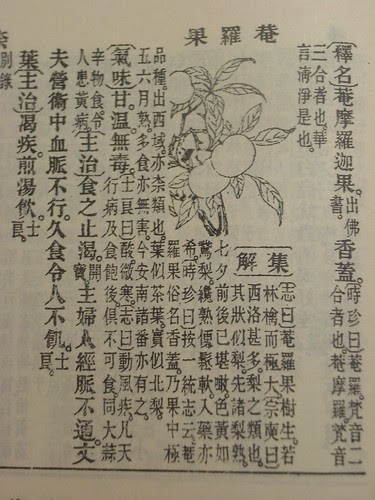 菴羅果
釋名菴摩羅迦果。出佛書。香蓋。時珍曰。菴羅。梵音二合者也。菴摩羅。梵音
三合者也。華言清淨是也。
集解
志曰。菴羅果樹生。若
林檎而極大。宗奭曰。
西洛甚多。梨之類也。
其狀似梨。先諸梨熟。
七夕前後已堪啖。色黃如
鵞梨。纔熟便鬆軟。入藥亦
希。時珍曰。按一統志云。菴
羅果俗名香蓋。乃果中極
品。種出西域。亦柰類也。葉似茶葉。實似北梨。
五六月熟。多食亦無害。今安南諸番亦有之。
氣味甘。溫。無毒。士良曰。酸。微寒。志曰。動風疾。凡天行病及食飽後。俱不可食。同大蒜
辛物食。令人患黃病。主治食之止渴。開寶。主婦人經脈不通。丈
夫營衛中血脈不行。久食令人不飢。士良。
葉主治渴疾。煎湯飲。士良。
別錄